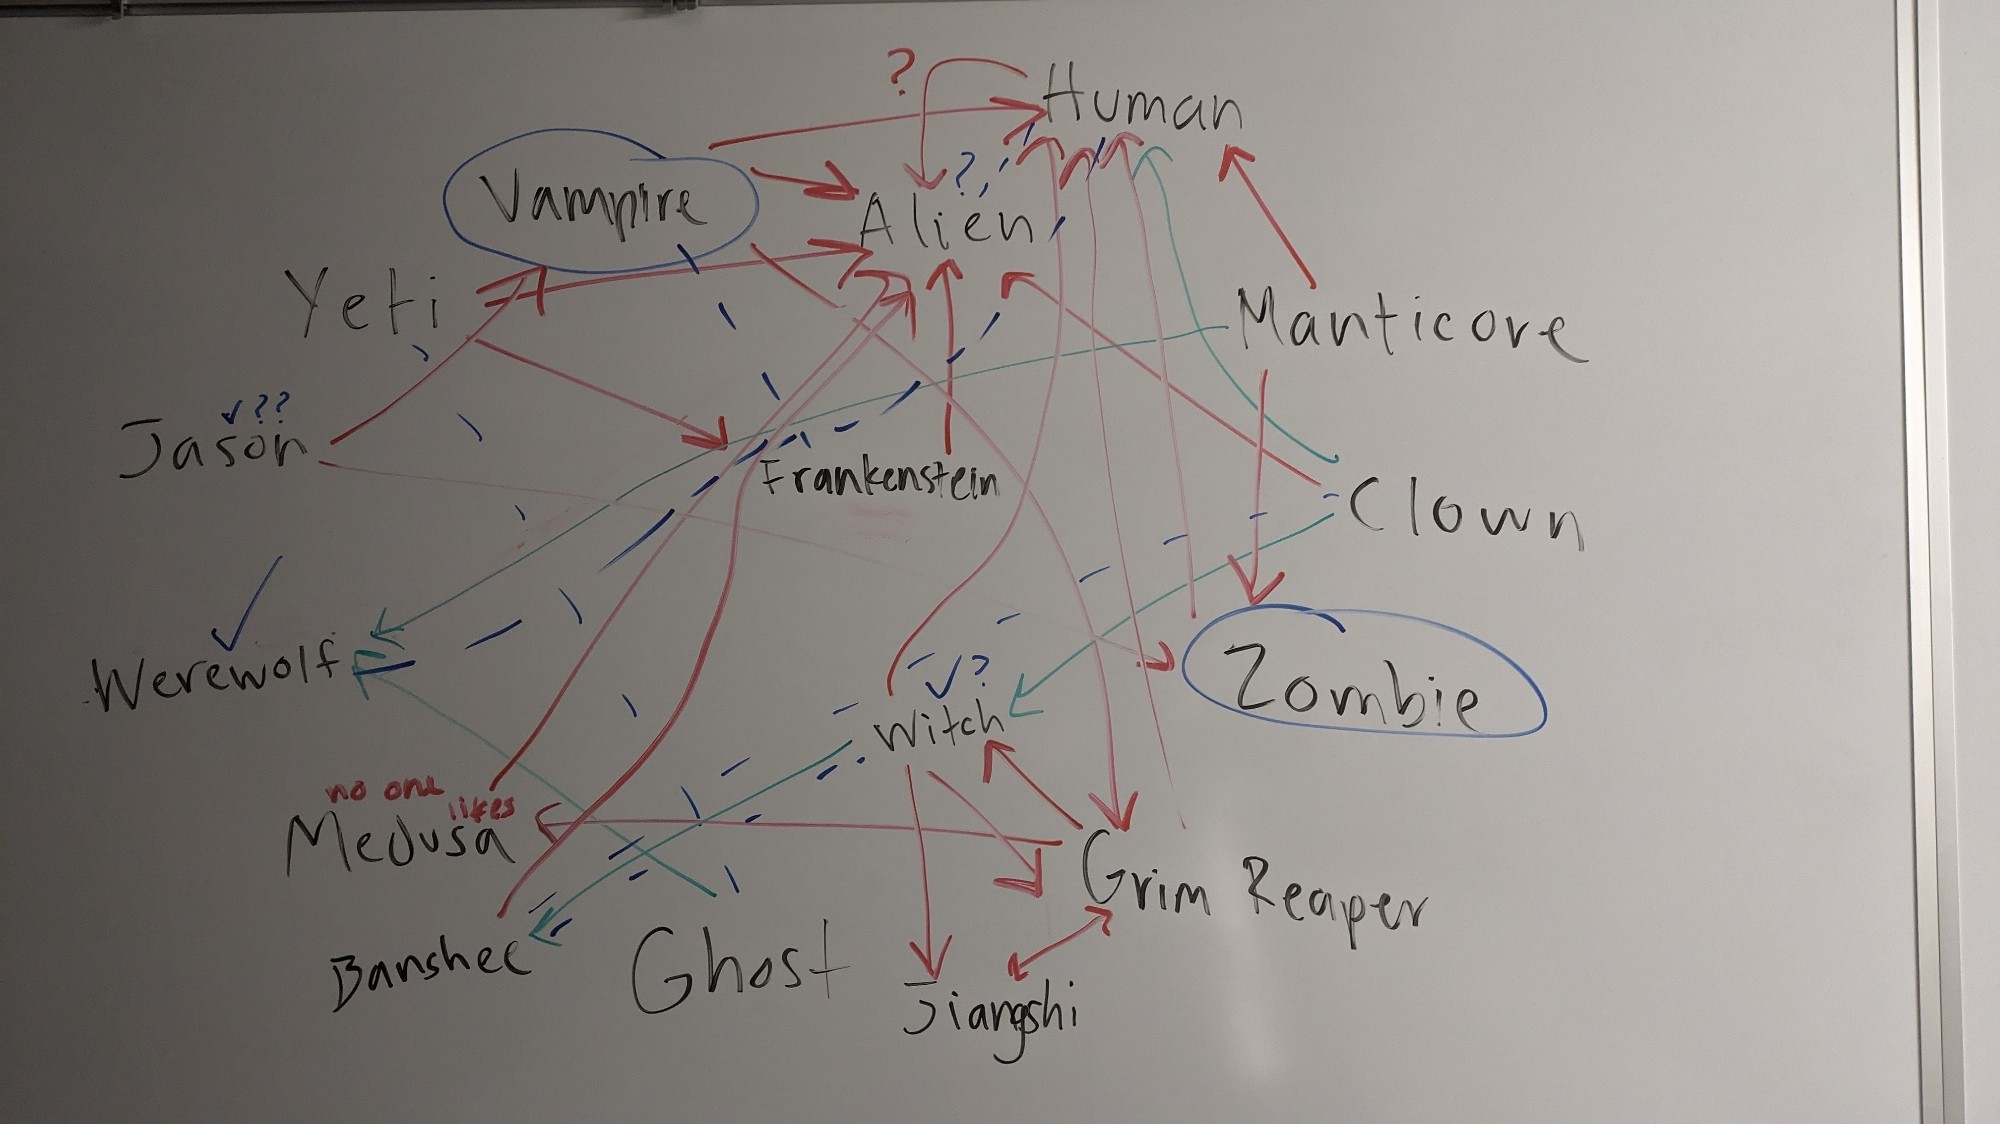 ?
Human
?
Vampire
Alien
Yeti
Manticore
??
Jason
Frankenstein
Clown
Werewolf
?
Zombie
Witch
no one
likes
Medusa
Grim Reaper
Banshee
Ghost
Jiangshi